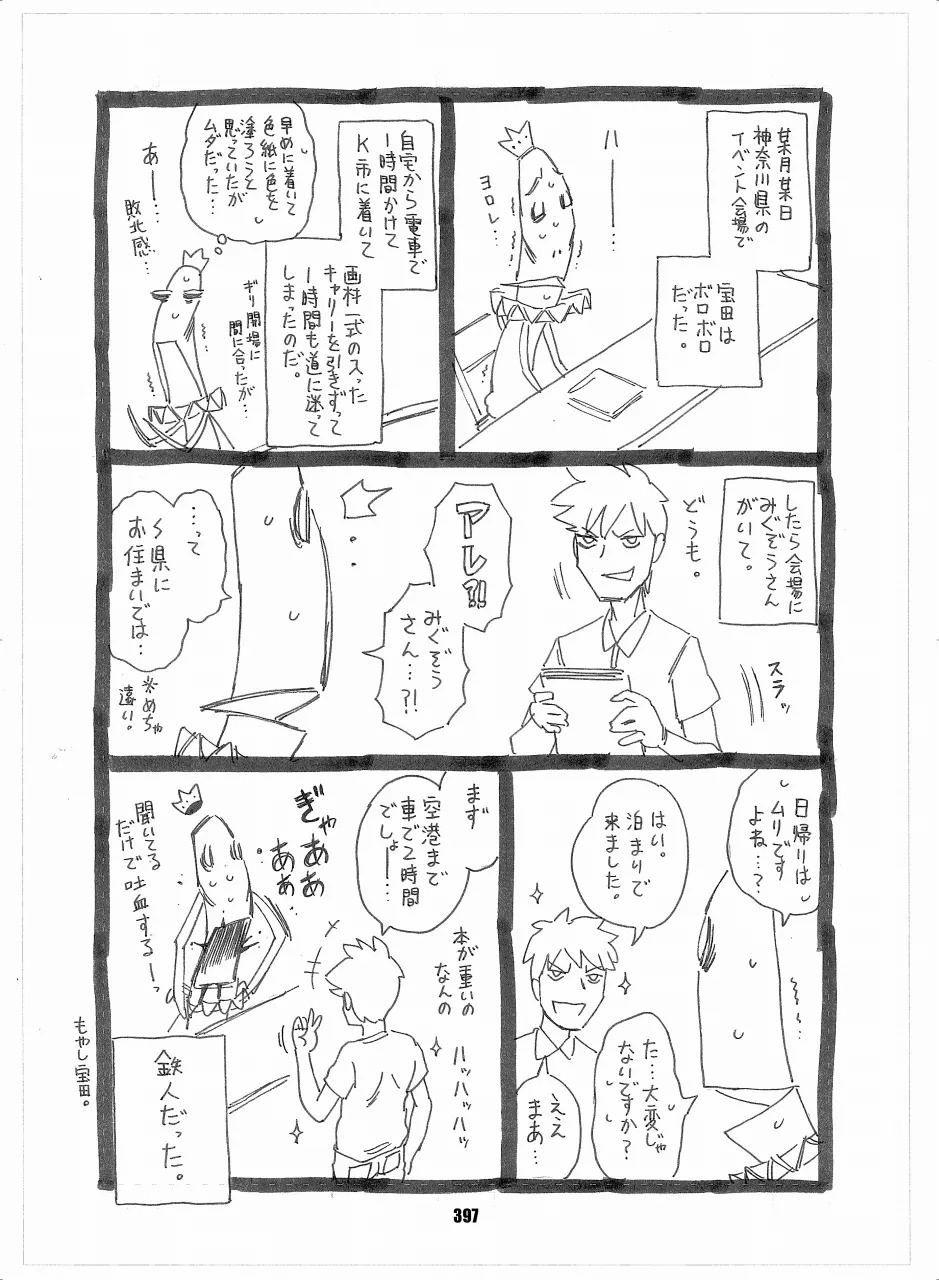 某月某日
神奈川県の
イベント会場で
宝田は
ボロボロ
だった。
ハー
……
ヨロレ…
自宅から電車で
1時間かけて
K市に着いて
画材一式の入った
キャリーを引きずって
1時間も道に迷って
しまったのだ。
早めに着いて
色紙に色を
塗ろうと
思っていたが
ムダだった…
あー……
敗北感…
ギリ開場に
間に合ったが…
したら会場に
みぐぞうさん
がいて。
どうも。
スラッ
アレ?!
みぐぞう
さん…?!
…って
S県に
お住まいでは…
※めちゃ
遠い。
日帰りは
ムリです
よね…?
はい。
泊まりで
来ました。
た…大変じゃ
ないですか?
ええ
まあ…
まず
空港まで
車で2時間
でしょー…
本が重いの
なんの
ハッハッハッ
ぎゃああ
あぁぁ
聞いてる
だけで吐血するーっ
鉄人だった。
もやし宝田。
397